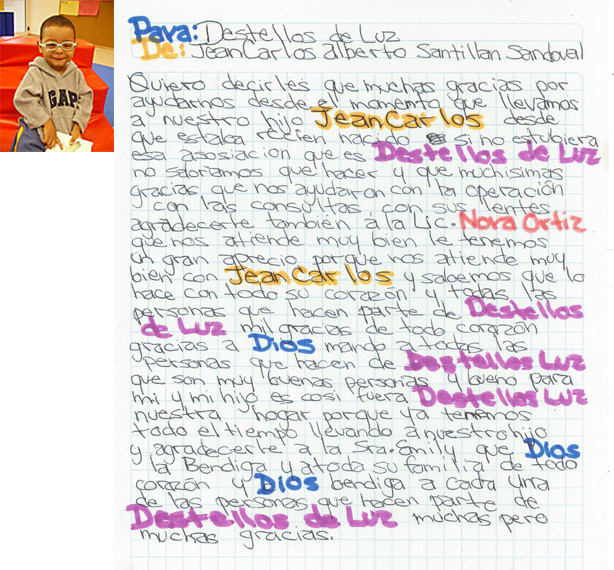 GAP
Para: Destellos de Luz
De: JeanCarlos alberto Santillan Sandoval
Quiero decirles que muchas gracias por
ayudarnos desde el momemto que llevamos
a nuestro hijo JeanCarlos desde
que estaba recien nacido si no estubiera
esa asosiacion que es Destellos de Luz
no sabriamos que hacer y que muchisimas
gracias que nos ayudaron con la operación
con las consultas con sus lentes
agradecerte también á la Lic. Nora Ortiz
que nos atiende muy bien le tenemos
un gran aprecio porque nos atiende muy
bien con JeanCarlos y sabemos que lo
hace con todo su corazón y todas las
personas que hacen parte de Destellos
de Luz mil gracias de todo corazón
gracias a Dios mando a todas las
personas que hacen de Destellos Luz
que son muy buenas personas y bueno para
mi y mi hijo es cosi fuera Destellos Luz
nuestra hogar porque ya tenemos
todo el tiempo llevando a nuestro hijo
y agradecerre a la Sra. Emily que Dios
la Bendiga y a toda su familia de todo
corazón y Dios bendiga a cada una
de las personas que hacen parte de
Destellos de Luz muchas pero
muchas gracias.